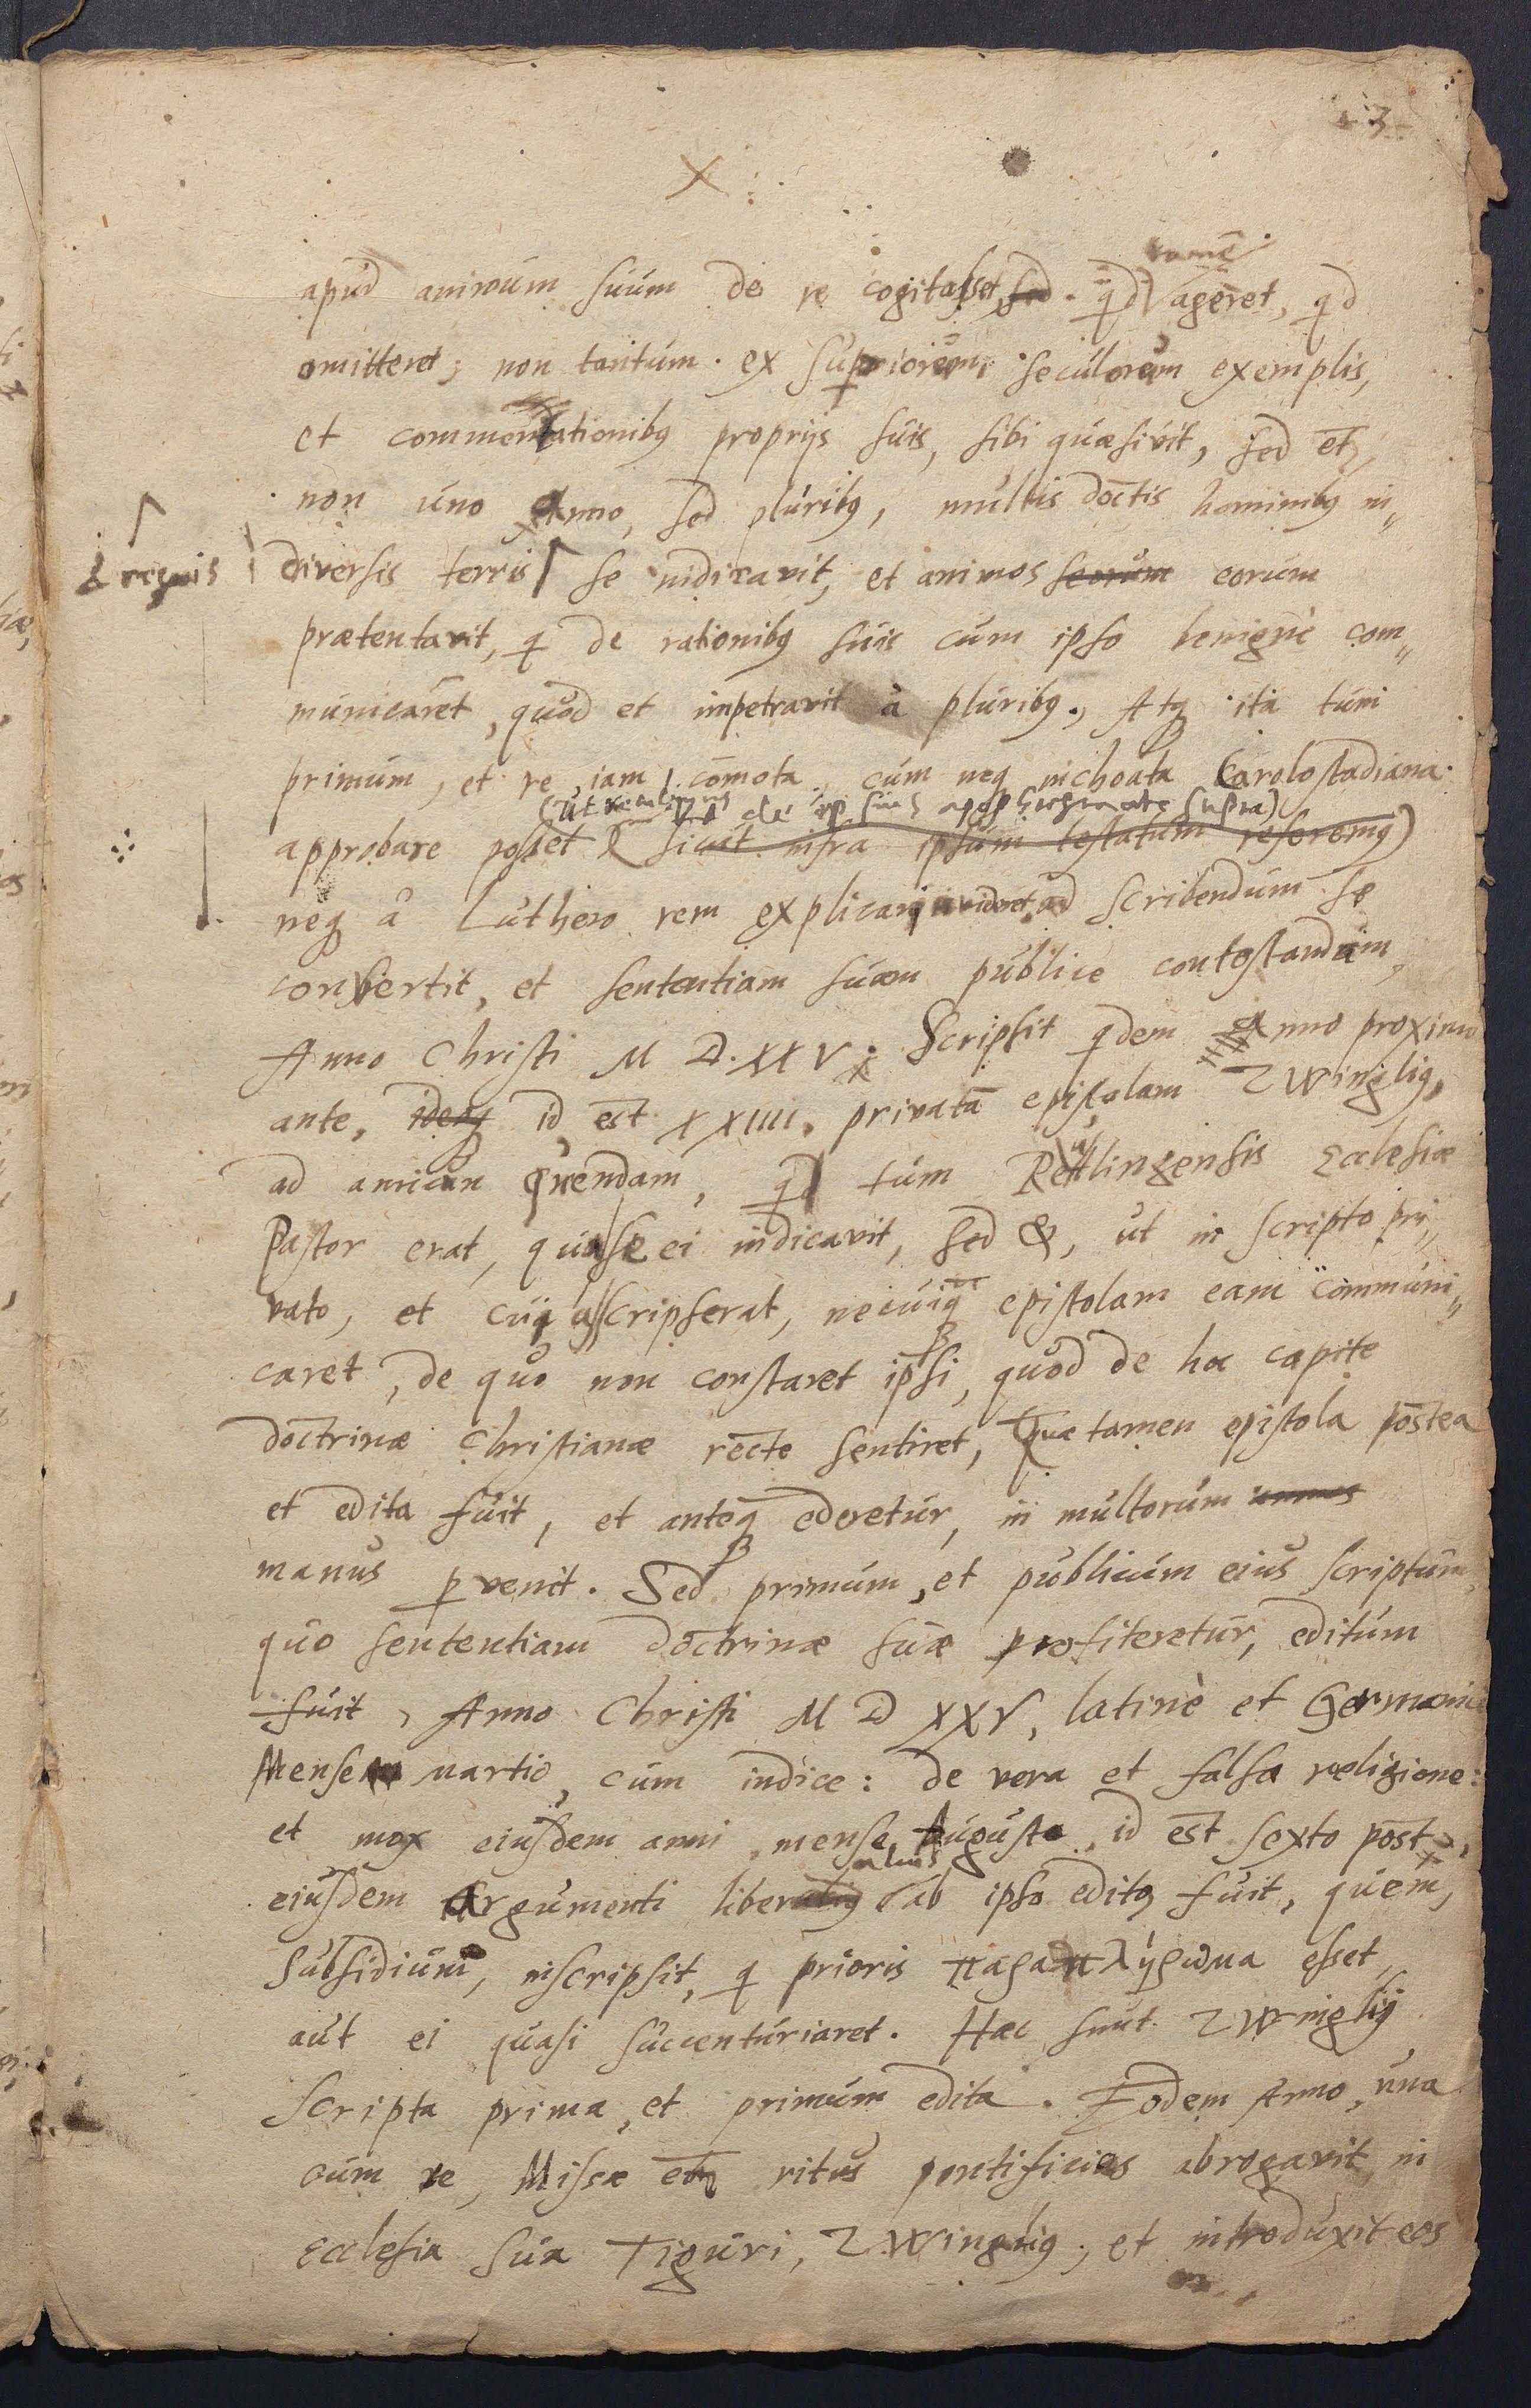 3
apud animum suum de re cogitasset, sed. qd tamē ageret, qd
omitteret; non tantum. ex supriorum seculorum exemplis,
et commentationibꝰ proprijs suis, sibi quæsivit, sed et
non uno Anno, sed pluribꝰ, multis doctis hominibꝰ in„
& regnis
diversis terris se indicavit, et animos seorum eorum
prætentavit, q de rationibꝰ suis cum ipso benignè com„
municaret, quod et impetravit à pluribꝰ., Atqꝫ ita tum
primum, et re iam com̄ota, cum neqꝫ inchoata Carolostadiana
(ut de ipsius apophthegmate supra)
approbare posset sicut infra ipsum testatum referemꝰ)
neqꝫ à Luthero rem explicari videret, ad scribendum se
convertit, et sententiam suam publice contestandam,
Anno Christi M D. XXV. Scripsit qdem Anno proximo
ante, ideqꝫ id est XXIIII. privatā epistolam Zwinglius,
ad amicum quendam, q tum Reutlingensis Ecclesiæ
Pastor erat, qua se ei indicavit, sed &, ut in scripto pri„
vato, et cuiq scripserat, ne cuiq epistolam eam communi„
caret, de quo non constaret ipsi, quod de hoc capite
doctrinæ Christianæ recte sentiret, Quæ tamen epistola postea
et edita fuit, et anteqꝫ ederetur, in multorum
manus pvenit. Sed primum, et publicum eius scriptum,
quo sententiam doctrinæ suæ profiteretur, editum
fuit, Anno Christi M D XXV, latinè et Germanicè
Mense martio, cum indice: de vera et falsa religione:
et mox eiusdem anni, mense Augusto, id est sexto post,
alius
eiusdem Argumenti liber ab ipso editꝰ fuit, quem,
Subsidium, inscripsit, q prioris παραπλήρωμα esset,
aut ei quasi succenturiaret. Hæc sunt Zwinglij
scripta prima, et primum edita. Eodem Anno, una
cum re, Missæ etiā ritus pontificios abrogavit, in
Ecclesia sua Tiguri, Zwinglius, et introduxit eos